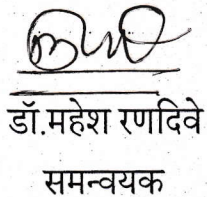 डॉ.महेश रणदिवे
समन्वयक